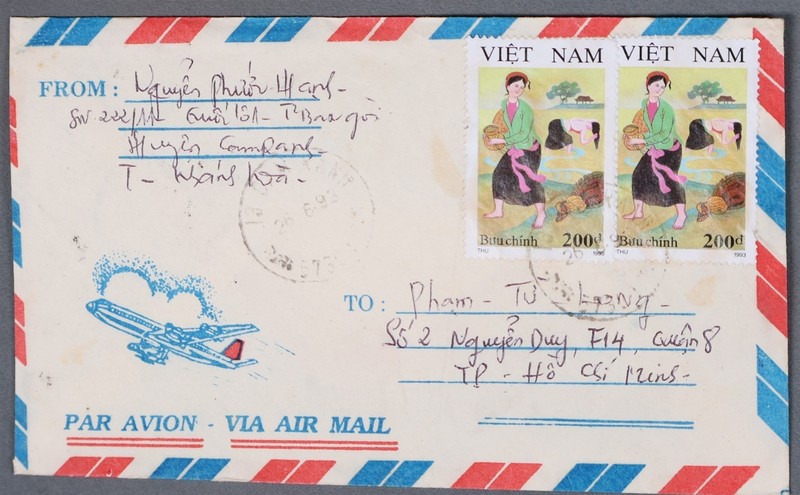 FROM : Nguyễn Phước Hạnh -
SN 222/11 - T Ba Ngòi
Huyện Cam Ranh -
T - Khánh Hòa -
VIỆT NAM
Bưu chính 200đ
THU 1993
VIỆT NAM
Bưu chính 200đ
THU 1993
26.6.93
5731
TO : Phạm - Tư -
Số 2 Nguyễn Duy, F14, Quận 8
TP - Hồ Chí Minh -
PAR AVION - VIA AIR MAIL